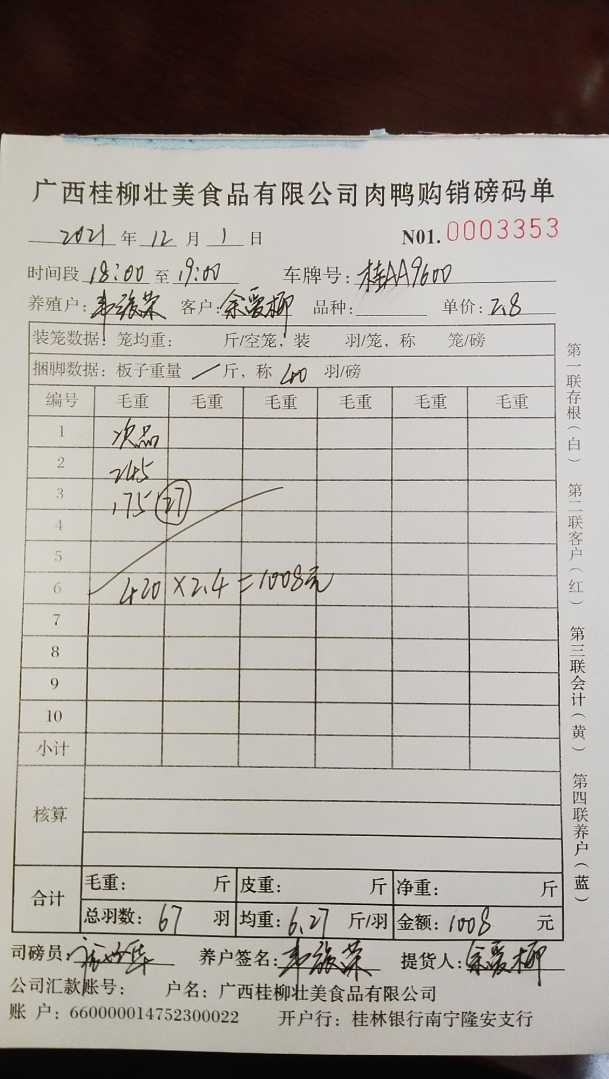 广西桂柳壮美食品有限公司肉鸭购销磅码单
2021 年 12 月 1 日 N01. 0003353
时间段 18:00 至 19:00 车牌号: 桂AA9600
养殖户: 韦振荣 客户: 余爱柳 品种: 单价: 2.8
装笼数据: 笼均重: 斤/空笼, 装 羽/笼, 称 笼/磅
捆脚数据: 板子重量 / 斤, 称 40 羽/磅
编号 毛重 毛重 毛重 毛重 毛重 毛重
1 次品
2 245
3 175 27
4
5
6 420 × 2.4 = 1008元
7
8
9
10
小计
核算
合计 毛重: 斤 皮重: 斤 净重: 斤
总羽数: 67 羽 均重: 6.27 斤/羽 金额: 1008 元
司磅员: 养户签名: 韦振荣 提货人: 余爱柳
公司汇款账号: 户名: 广西桂柳壮美食品有限公司
账 户: 660000014752300022 开户行: 桂林银行南宁隆安支行
第一联存根(白) 第二联客户(红) 第三联会计(黄) 第四联养户(蓝)